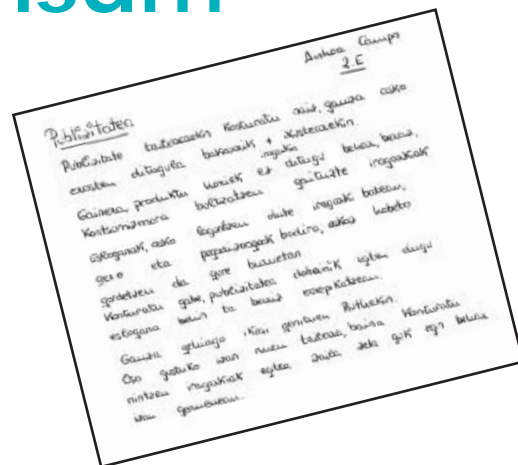 Ainhoa Campo
2.E
Publizitatea
Publizitate tailerrarekin konturatu naiz, gauza asko
erosten ditugula bakarrik iragarkia ikustearekin.
Gainera, produktu horiek ez ditugu behar, beraz,
kontsumismora bultzatzen gaituzte iragarkiak.
Esloganak, asko laguntzen dute iragarki batean,
gero eta pegadizoagoak badira, askoz hobeto
gordetzen da gure buruetan.
Konturatu gabe, publizitatea dohainik egiten dugu
eslogana behin ta berriz errepikatzean.
Gauza gehiago ikasi genituen Rutherkin.
Oso gustuko izan nuen tailerra, baina konturatu
nintzen iragarkiak egitea zaila zela guk egin behar
izan genuenean.